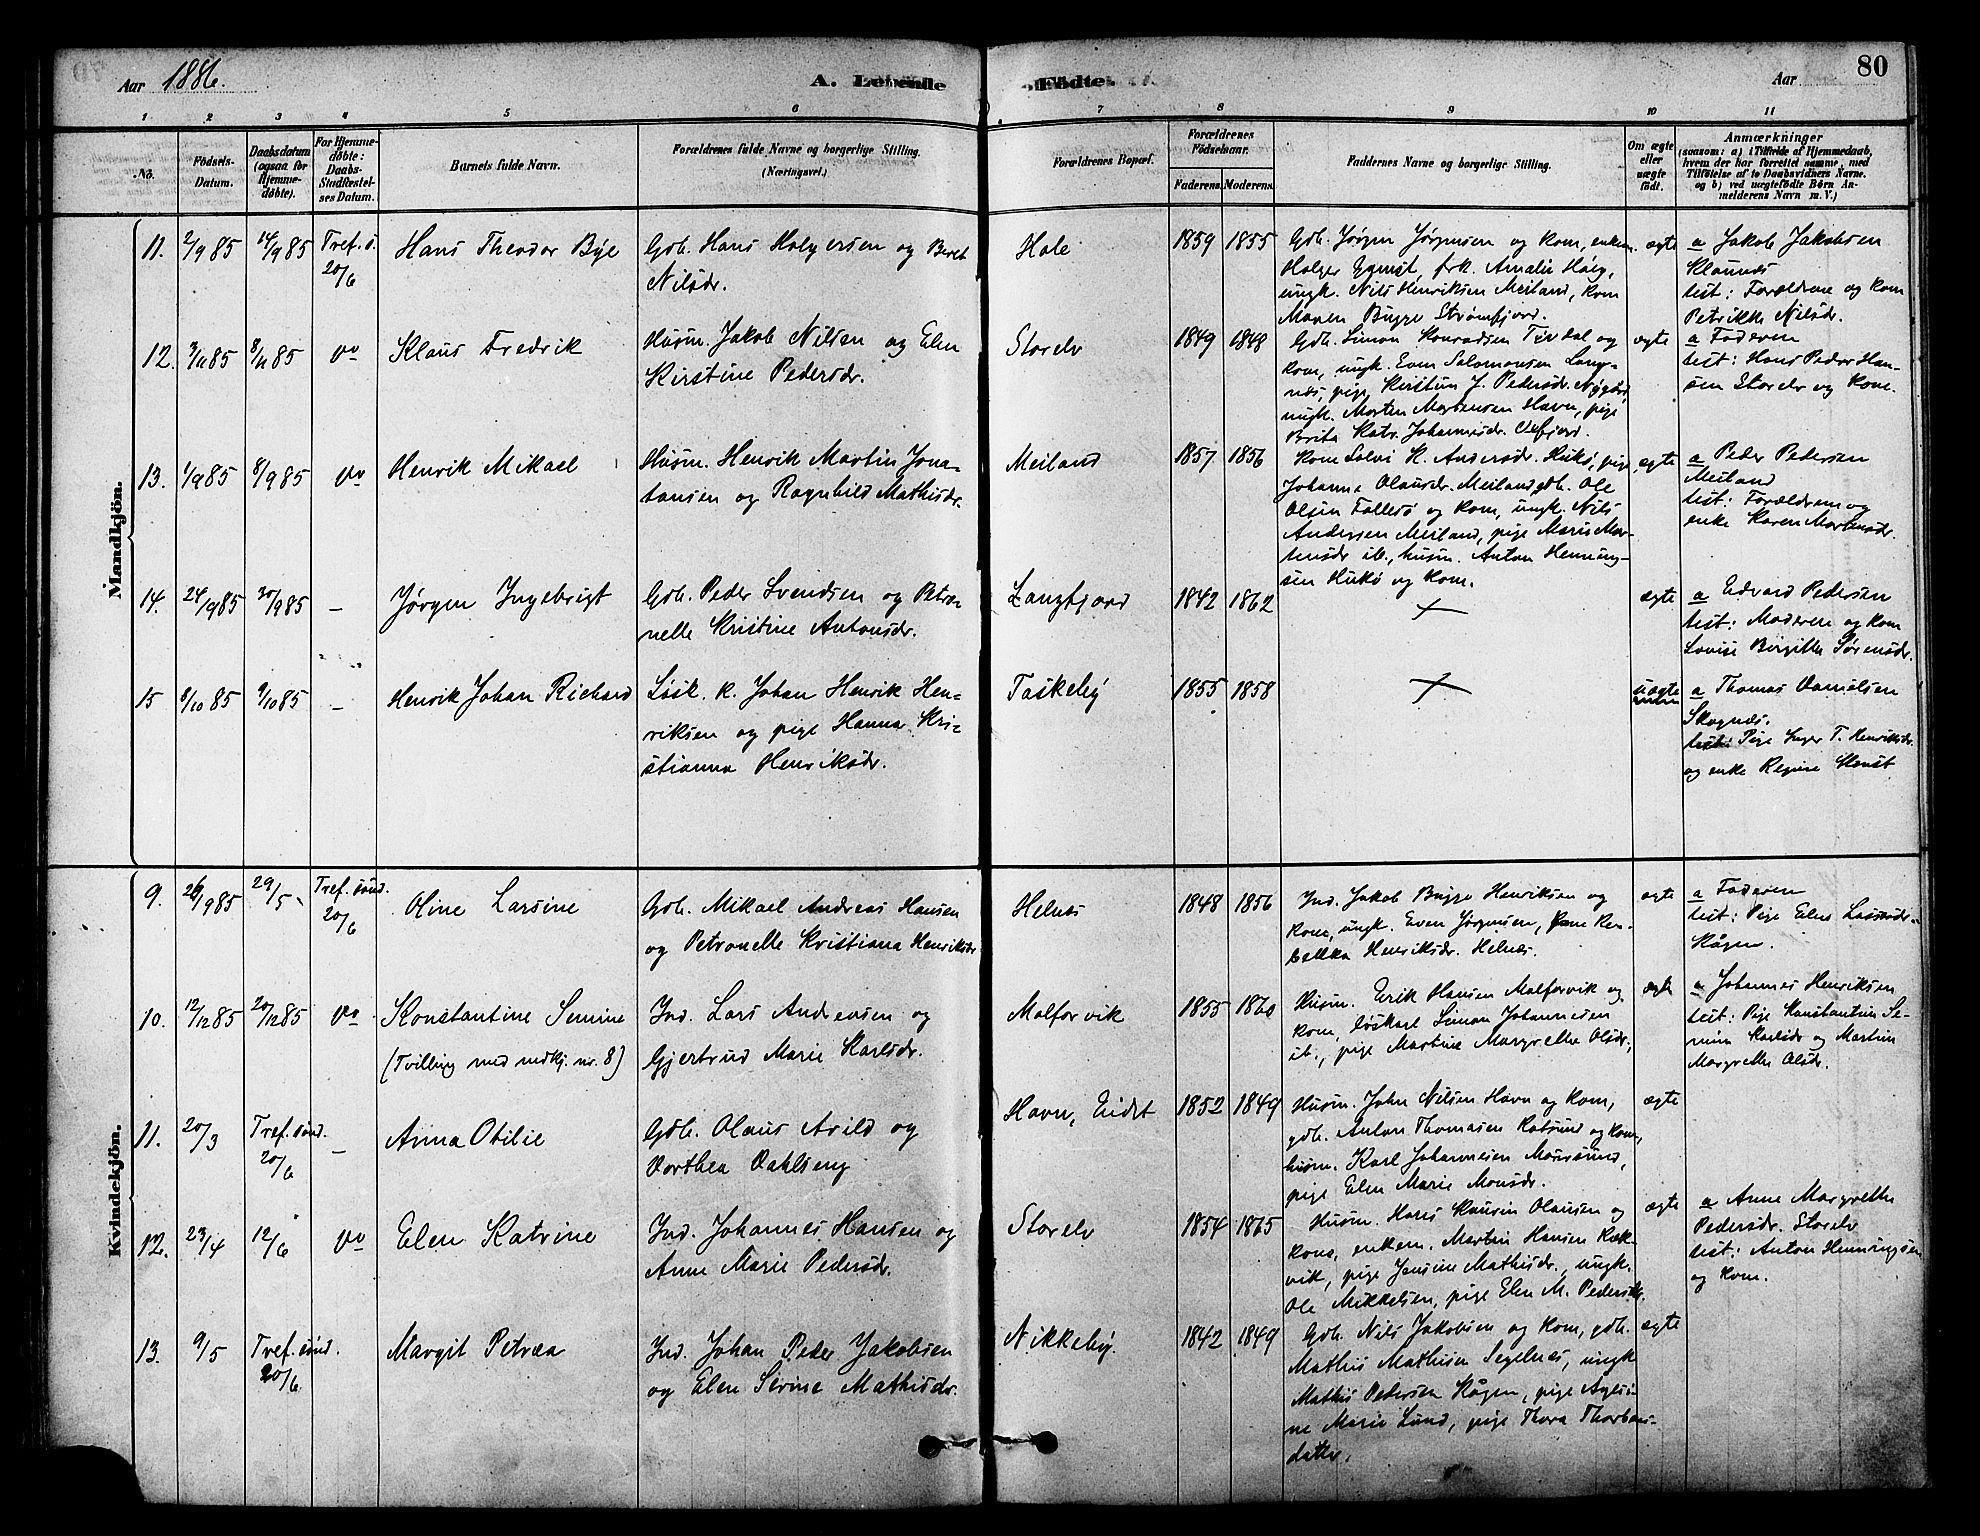 Aar 1886.
A. Levende
Fødte.
Aar
80
1 2 3 4 5 6 7 8 9 10 11
No.
Fødsels-
Datum.
Daabsdatum
(ogsaa for
Hjemme-
døbte).
For Hjemme-
døbte:
Daabs-
Stadfæstel-
ses Datum.
Barnets fulde Navn.
Forældrenes fulde Navne og borgerlige Stilling.
(Næringsvei.)
Forældrenes Bopæl.
Forældrenes
Fødselsaar.
Faderens. Moderens.
Faddernes Navne og borgerlige Stilling.
Om ægte
eller
uægte
født.
Anmærkninger
(saasom: a) i Tilfælde af Hjemmedaab,
hvem der har forrettet samme, med
Tilføielse af to Daabsvidners Navne.
og b) ved uægtefødte Børn An-
melderens Navn m. V.)
Mandkjön.
11. 2/9 85 14/9 85 Tref. s.
20/6
Hans Theodor Bye
Gdb. Hans Holgersen og Beret
Nilsdr.
Hole
1859 1855
Gdb. Jørgen Jørgensen og kom, enkem.
Holger, frk. Amalie Høeg,
ungk. Nils Henriksen Meiland, kom
Maren Bugge Strømfjord.
ægte
a Jakob Jakobsen
Klaunes
test: Forældrene og kom
Petrikke Nilsdr.
12. 3/11 85 8/11 85 do
Klaus Fredrik
Husm. Jakob Nilsen og Elen
Kirstine Pedersdr.
Storelv
1849 1848
Gdb. Simon Konradsen Tixdal og
kom, ungk. Even Salomonsen Lang-
nes, pige Kirstin J. Pedersdr. Nygård,
ungk. Morten Mortensen Havn, pige
Brita Katr. Johannesdr. Oxfjord.
ægte
a Faderen
test: Hans Peder Han-
sen Storelv og kom.
13. 1/9 85 8/9 85 do
Henrik Mikael
Husm. Henrik Martin Jona-
tansen og Ragnhild Mathisdr.
Meiland
1857 1856
Kom Solvi K. Andersdr. Hukø, pige
Johanne Olausdr. Meiland, gdb. Ole
Olsen Follesø og kom, ungk. Nils
Andersen Meiland, pige Marie Mor-
tensdr ib., husm. Anton Henning-
sen Hukø og kom.
ægte
a Peder Pedersen
Meiland
test: Forældrene og
enke Karen Mortensdr.
14. 24/9 85 30/9 85 -
Jørgen Ingebrigt
Gdb. Peder Svendsen og Petro-
nelle Kristine Antonsdr.
Langfjord
1842 1862
+
ægte
a Edvard Pedersen
test: Moderen og kom
Lovise Birgitte Sørensdr.
15 8/10 85 9/10 85 -
Henrik Johan Richard
Løsk. k. Johan Henrik Hen-
riksen og pige Hanna Kri-
stianna Henriksdr.
Taskeby
1855 1858
+
uægte
a Thomas Danielsen
Skognes.
test: Pige Inger T. Henriksdr.
og enke Regine Horst
Kvindekjön.
9. 26/9 85 29/5 Tref. sönd.
20/6
Oline Larsine
Gdb. Mikael Andreas Hansen
og Petronelle Kristiana Henriksdr
Helnes
1848 1856
Ind. Jakob Bugge Henriksen og
kom, ungk. Even Jørgensen, Rebekka Henriksdr. Helnes.
ægte
a Faderen
test: Pige Elen Larsdr.
Kågen.
10. 12/12 85 20/12 85 do
Konstantine Semine
(Tvilling med mdkj. nr. 8)
Ind. Lars Andersen og
Gjertrud Marie Karlsdr.
Malforvik
1855 1860
Husm. Erik Hansen Malforvik og
kom, løskarl Simon Johannesen
ib., pige Martine Margrethe Olsdr.,
ægte
a Johannes Henriksen
test: Pige Konstantine Se-
mine Karlsdr og Martine
Margrethe Olsdr.
11. 20/3 Tref. sönd.
20/6 -
Anna Otilie
Gdb. Olaus Arild og
Dorthea Dahlseng
Havn, Eidet
1852 1849
Husm. John Nilsen Havn og kom,
gdb. Anton Thomasen Rotsund og kom,
husm. Karl Johannesen Maursund,
pige Elen Marie Monsdr.
ægte
12. 23/4 12/6 do
Elen Katrine
Ind. Johannes Hansen og
Anne Marie Pedersdr.
Storelv
1854 1865
Husm. Hans Laurin Olausen og
kone, enkem. Martin Hansen Kæk-
vik, pige Jensine Mathisdr., ungk.
Ole Mikkelsen, pige Elen M. Pedersdr.
ægte
a Anne Margrethe
Pedersdr. Storelv
test: Anton Henningsen
og kom.
13. 9/5 Tref. sönd.
20/6
Margit Petræa
Ind. Johan Peder Jakobsen
og Elen Serine Mathisdr.
Nikkeby.
1842 1849
Gdb. Nils Jakobsen og kom, gdb.
Mathis Mathisen Segelnes, ungk
Mathis Pedersen Kågen, pige Agesi-
ne Marie Lund, pige Thora Thorbens-
datter.
ægte